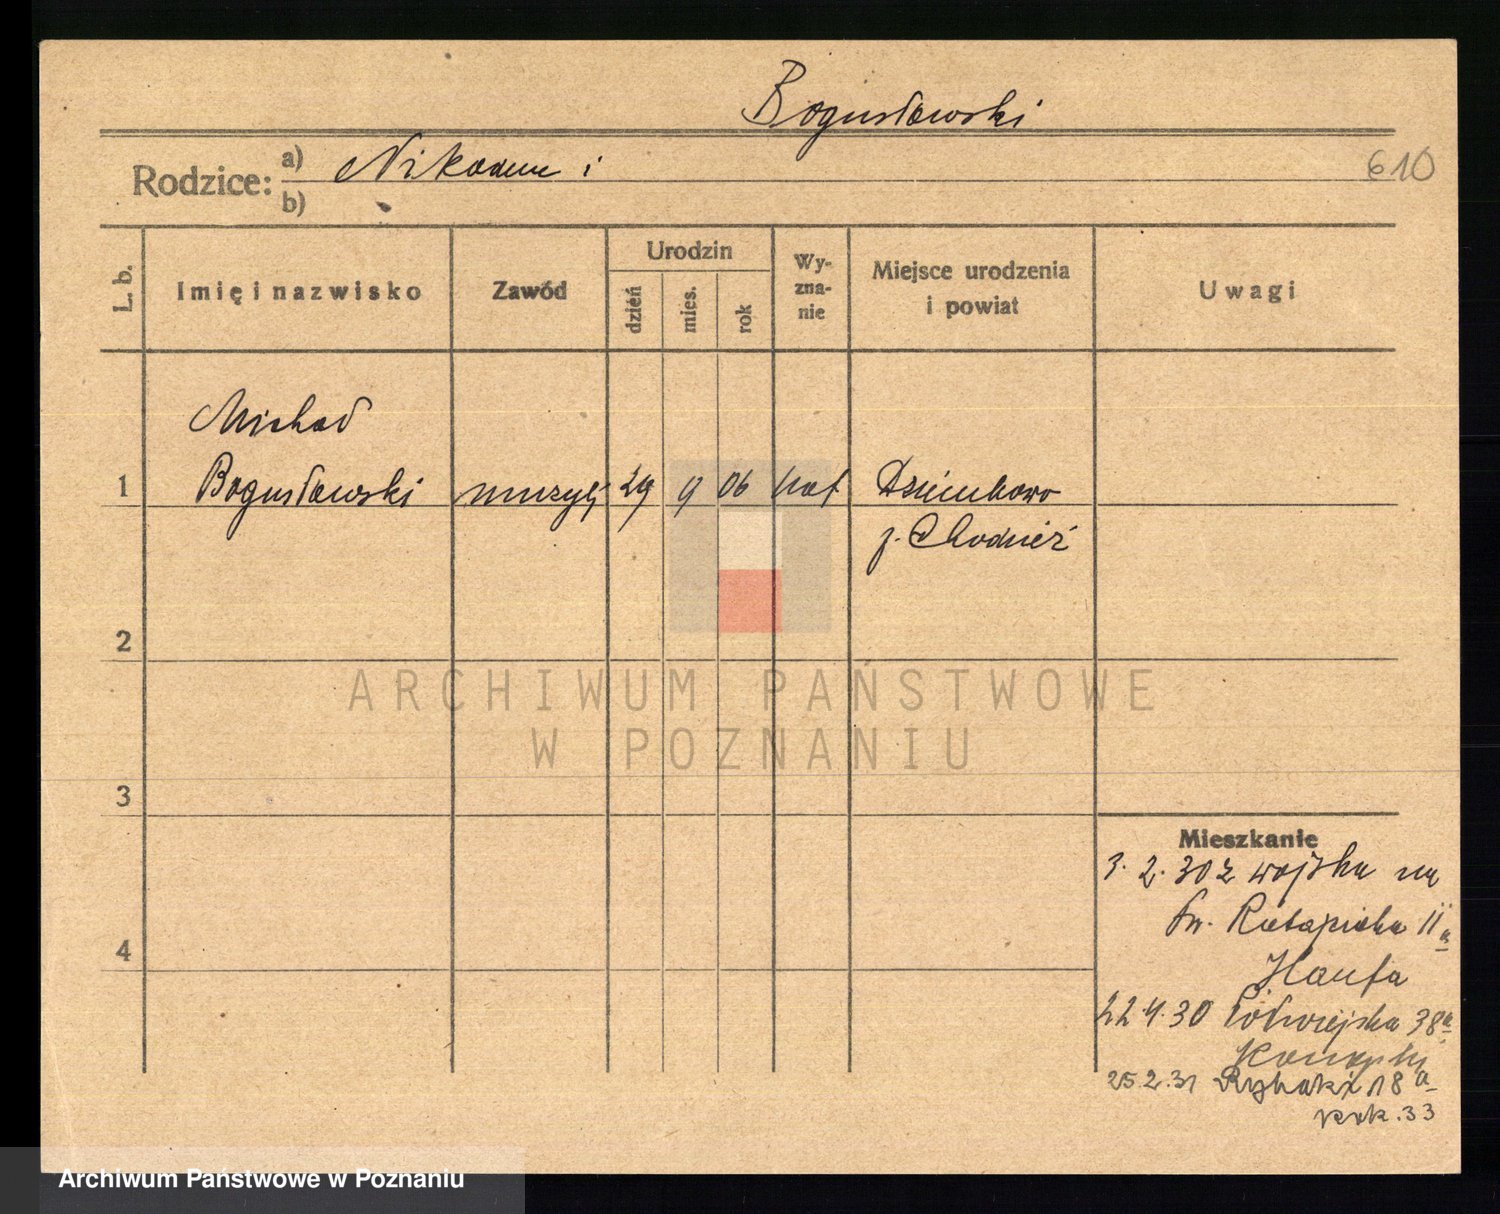 Bogusławski
Rodzice: a) Nikodem i
b)
610
L. b.
Imię i nazwisko
Zawód
Urodzin
dzień
mies.
rok
Wy-
zna-
nie
Miejsce urodzenia
i powiat
Uwagi
Michał
1 Bogusławski muzyk 29 9 06 kat Dziembowo
p. Chodzież
2
3
4
Mieszkanie
3.2.30 z wojska na
Św. Ratajczaka 11a
22.4.30 Półwiejska 38a
25.2.31 Rybaki 18a
33
ARCHIWUM PAŃSTWOWE
W POZNANIU
Archiwum Państwowe w Poznaniu